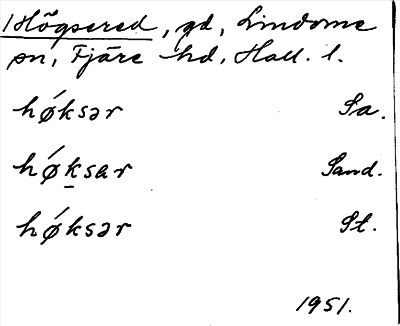 Högsered, gd, Lindome
sn, Fjäre hd, Hall. l.
hǿksər Sa.
hǿksar Sand.
hǿksər St.
1951.